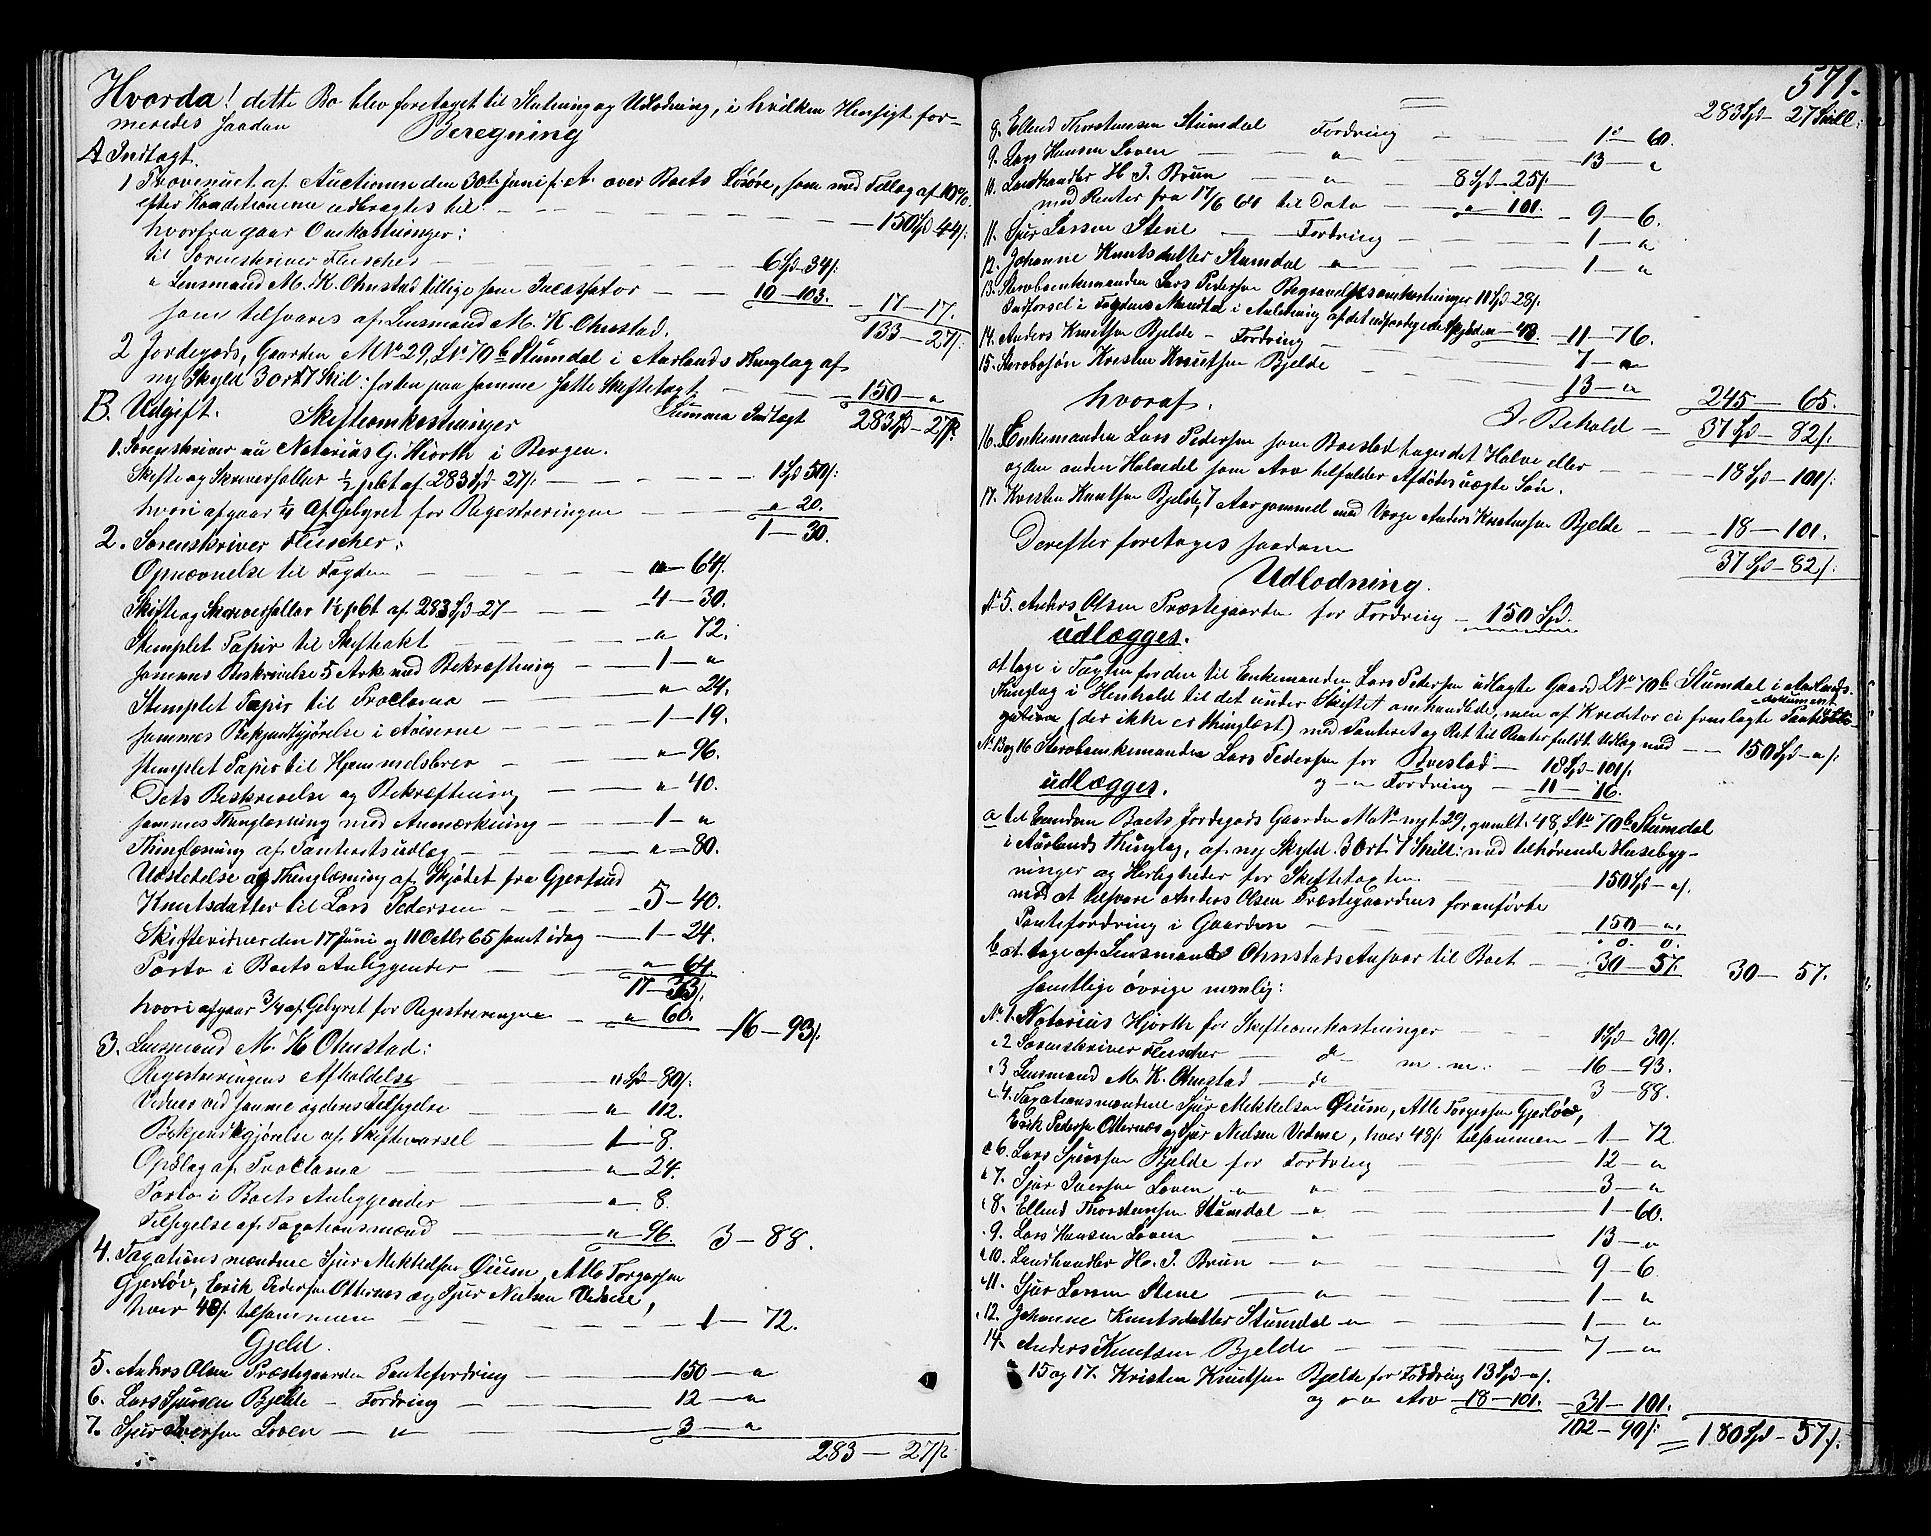 Hvorda! dette Bo blev foretaget til Slutning og Udlodning, i hvilken Hensigt for-
meredes saadan Beregning
A Indtægt.
1 Provenuet af Auctionen den 30te Juni f. A. over Boets Løsøre, som med Tillæg af 10%
efter Konditionerne udbragtes til — 150 Spd 44 s:
hvorfra gaar Omkostninger:
til Sorenskriver Fleischer — 6 Spd 34 s:
" Lensmand M. K. Ohnstad tillige som Incassator — 10 — 103. — 17 — 17.
som tilsvares af Lensmand M. K. Ohnstad. 133 — 27 s:
2 Jordegods, Gaarden M No 29, L No 70 b Stumdal i Aurlands Thinglag af
ny Skyld 3 ort 7 Skil: forben paa samme Satte Skiftetaxt — 150 — "
Summa Indtægt 283 Spd — 27 s.
B. Udgift. Skifteomkostninger
1. Sorenskriver nu Notarius G. Hiorth i Bergen.
Skifte og Skriversallær ½ pCt af 283 Spd 27 s: — 1 Spd 50 s:
hvori afgaar ¼ af Gebyret for Registreringen — " 20.
1 — 30.
2. Sorenskriver Fleischer:
Opnævnelse til Fogden — " — 64 s.
Skifte og Skriversallær 1½ pCt af 283 Spd 27 — 4 — 30.
Stemplet Papir til Skifteakt — " 72.
sammes Beskrivelse 5 Ark med Bekræftning — 1 — "
Stemplet Papir til Proclama — " 24.
sammes Bekjentgjørelse i Aviserne — 1 — 19.
stemplet Papir til Hjemmelsbrev — " — 96.
Dets Beskrivelse og Bekræftning — " 40.
sammes Thinglæsning med Anmærkning — 1 — "
Thinlæsning af Panteretsudlæg — " — 80.
Udstedelse og Thinglæsning af Skjødet fra Gjertrud
Knutsdatter til Lars Pedersen — 5 — 40.
Skiftevidner den 17 Juni og 11 Octbr 65 samt idag — 1 — 24.
Porto i Boets Anliggender — " 64.
17 — 33 s.
hvori afgaar ¾ af Gebyret for Registreringen — " 60. — 16 — 93 s:
3. Lensmand M. K Ohnstad:
Registreringens Afholdelse — " Spd — 80 s.
Vidner ved samme og deres Tilsigelse — " 112.
Bekjendtgjørelse af Skiftevarsel — 1 — 8.
Opslag af Proclama — " 24.
Porto i Boets Anliggender — " 8.
Tilsigelse af Taxationsmænd — " 96. 3 — 88.
4. Taxationsmændene Sjur Mikkelsen Øium, Atle Torgersen
Gjerløv, Erik Pedersen Otternes og Sjur Nielsen Vedme,
hver 48 s. tilsammen — 1 — 72.
Gjeld.
5. Anders Olsen Præstegaarden Pantefordring — 150 — "
6. Lars Sjursen Bjelde — Fordring — 12 — "
7. Sjur Iversen Loven — " — 3 — "
283 — 27 s.
571.
283 Spd — 27 Skill:
8. Ellend Thorstensen Stumdal Fordring — 1 — 60.
9. Lars Hansen Loven — " — 13 — "
10. Landhandler H. J. Brun — " — 8 Spd — 25 s.
med Renter fra 17/6 60 til Dato — " — 101. — 9 — 6.
11. Sjur Larsen Stene — Fordring — 1 — "
12. Johanne Knutsdatter Stumdal — " — 1 — "
13. Stervboenkemanden Lars Pedersen Begravelsesomkostninger 11 Spd 28 s.
Indførsel i Fogdens Mandtal i Anledning af det udfærdigede Skjøde — 48. 11 — 76.
14. Anders Knutsen Bjelde — Fordring — 7 — "
15. Stervbosøn Kristen Knutsen Bjelde — 13 — " 245 — 65.
hvoraf. I Behold — 37 Spd — 82 s.
16. Enkemanden Lars Pedersen som Boeslod tager det Halve eller — 18 Spd — 101 s:
og den anden Halvedel som Arv tilfalder Afdødes uægte Søn.
17. Kristen Knutsen Bjelde, 7 Aar gammel med Værge Anders Knutsen Bjelde — 18 — 101.
37 Spd — 82 s.
Derefter foretages saadan
Udlodning.
No 5. Anders Olsen Præstegaarden for Fordring — 150 Spd.
udlægges.
at tage i Taxten for den til Enkemanden Lars Pedersen udlagte Gaard L No 70 b Stumdal i Aurlands
Thinglag i Henhold til det under Skiftet omhandlede, men af Kreditor ei fremlagte Pantedokument
(der ikke er thinglæst) med Panteret og Ret til Renter fuldt Udlæg med — 150 Spd — " s.
No 13 og 16 Stervboenkemanden Lars Pedersen for Boeslod — 18 Spd — 101 s.
og — " Fordring — 11 — 76.
udlægges.
a til Eiendom Boets Jordegods Gaarden M No nyt 29, gamlt 48, L No 70 b Stumdal
i Aurlands Thinglag, af ny Skyld 3 Ort 7 Skill: med tilhørende Husebyg-
ninger og Herligheder for Skiftetaxten — 150 Spd — " s.
med at tilsvare Anders Olsen Præstegaardens foranførte
Pantefordring i Gaarden — 150 — "
" 0. 0.
b at tage af Lensmand Ohnstads Ansvar til Boet — 30 — 57. 30 — 57.
samtlige øvrige nemlig:
No 1. Notarius Hjorth for Skifteomkostninger — 1 Spd — 30 s.
" 2 Sorenskriver Fleischer — do m. m. — 16 — 93.
" 3 Lensmand M. K. Ohnstad — do — 3 — 88.
" 4. Taxationsmændene Sjur Mikkelsen Øium, Atle Torgersen Gjerløv,
Erik Pedersen Otternæs og Sjur Nielsen Vedme, hver 48 s. tilsammen — 1 — 72.
" 6. Lars Sjursen Bjelde for Fordring — 12 — "
" 7. Sjur Iversen Loven " — " — 3 — "
" 8. Ellend Thorstensen Stumdal — " — 1 — 60.
" 9. Lars Hansen Loven — " — 13 — "
" 10. Landhandler H. J. Brun — " — 9 — 6.
" 11. Sjur Larsen Stene — " — 1 — "
" 12. Johanne Knutsdatter Stumdal — " — 1 — "
14. Anders Knutsen Bjelde — 7 — "
" 15 og 17. Kristen Knutsen Bjelde for Fordring 13 Spd — " s.
og — " Arv — 18 — 101. — 31 — 101.
102 — 90 s. = 180 Spd — 57 s.